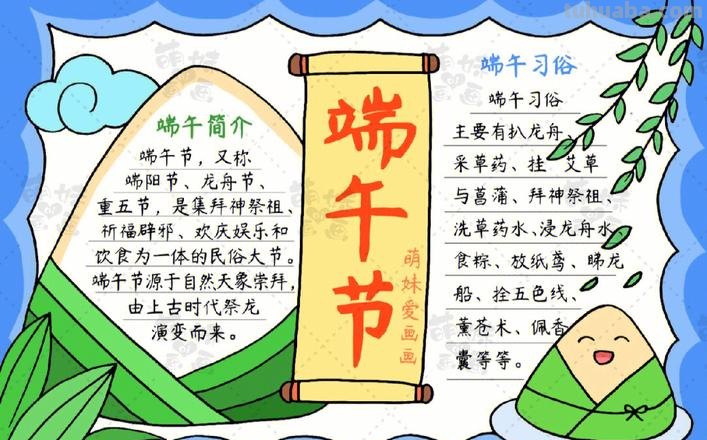 tuhuaba.com
端午简介
端午节，又称
端阳节、龙舟节、
重五节，是集拜神祭祖、
祈福辟邪、欢庆娱乐和
饮食为一体的民俗大节。
端午节源于自然天象崇拜，
由上古时代祭龙
演变而来。
端午节
萌妹爱画画
端午习俗
端午习俗
主要有扒龙舟、
采草药、挂 艾草
与菖蒲、拜神祭祖、
洗草药水、浸龙舟水
食粽、放纸鸢、睇龙
船、拴五色线、
薰苍术、佩香
囊等等。